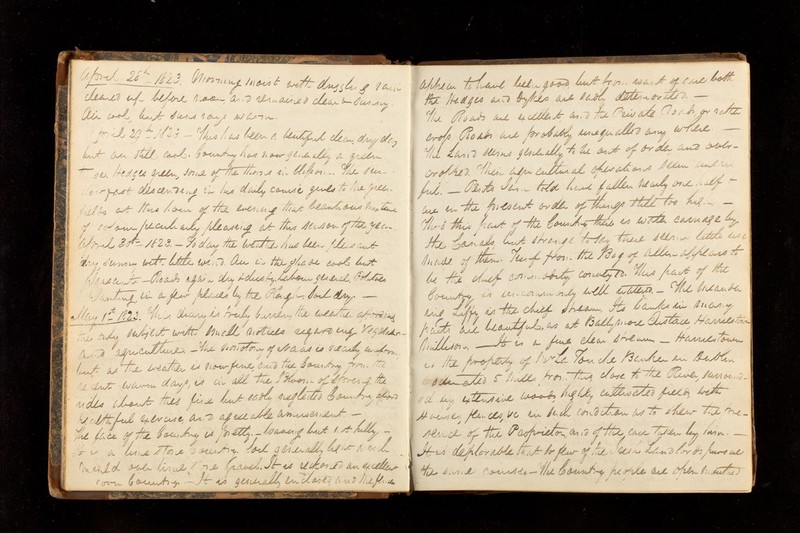 April 28th 1823. Morning moist with drizzling rain
cleared up before noon and remained clear & sunny.
Air cool, but Suns rays warm.
April 29th 1823 – This has been a beautiful clear, dry day
but air still cool. Country has now generally a green
hedges been, some of the thorns in blossom. The sun
descending in his daily course gives to the green
fields at this hour of the evening that beauteous
of colour peculiarly pleasing at this season of the year.
April 30th 1823. – To day the weather has been pleasant
dry sunny with little wind. Air in the shade cools but
pleasant – Roads again dry & dusty, labour general, Potatoes
Planting in a few places by the Plough. Soil dry. –
May 1st 1823. This diary is truly barren, the weather affording
the only subject with small notices regarding Vegetation
and agriculture. – The monotony of Naas is nearly uniform,
but as the weather is now fine, and the Country from the
recent warm days, is in all the bloom of Spring the
rides about this fine but sadly neglected Country afford
healthful exercise and agreeable amusement –
The face of the Country is pretty – waving but not hilly –
it is a lime stone Country, soil generally light & rich
over lime stone gravel. It is reckoned an excellent
corn Country – It is generally enclosed and the
appear to have been good but from want of care both
the Hedges and Dykes are sadly deteriorated –
The Roads are excellent and the Private Roads or rather
cross Roads are probably unequalled any where –
The Land seems generally to be out of order and over-
cropped. Their agricultural operations seem
– Rents I am told have fallen nearly one half –
are in the present order of things still too high –
Thro' this part of the Country there is water carriage by
the Canals but strange to say there seems little use
made of them. Turf from the Bog of Allen appears to
be the chief commodity conveyed. This part of the
Country is uncommonly well watered – The meander-
ing Liffy is the chief Stream. Its banks in many
parts are beautiful as at Ballymore Eustace, Harristown
Millicent. – It is a fine clear stream – Harristown
is the property of Mr La Touche Banker in Dublin
situated 5 miles from this close to the River, surround-
ed by extensive woods, highly cultivated fields with
Houses, fences, &c in such condition as to shew the pre-
sence of the Proprietor, and of the care taken by him. –
It is deplorable that so few of the Landlords pursue
the same course – The Country people are open hearted